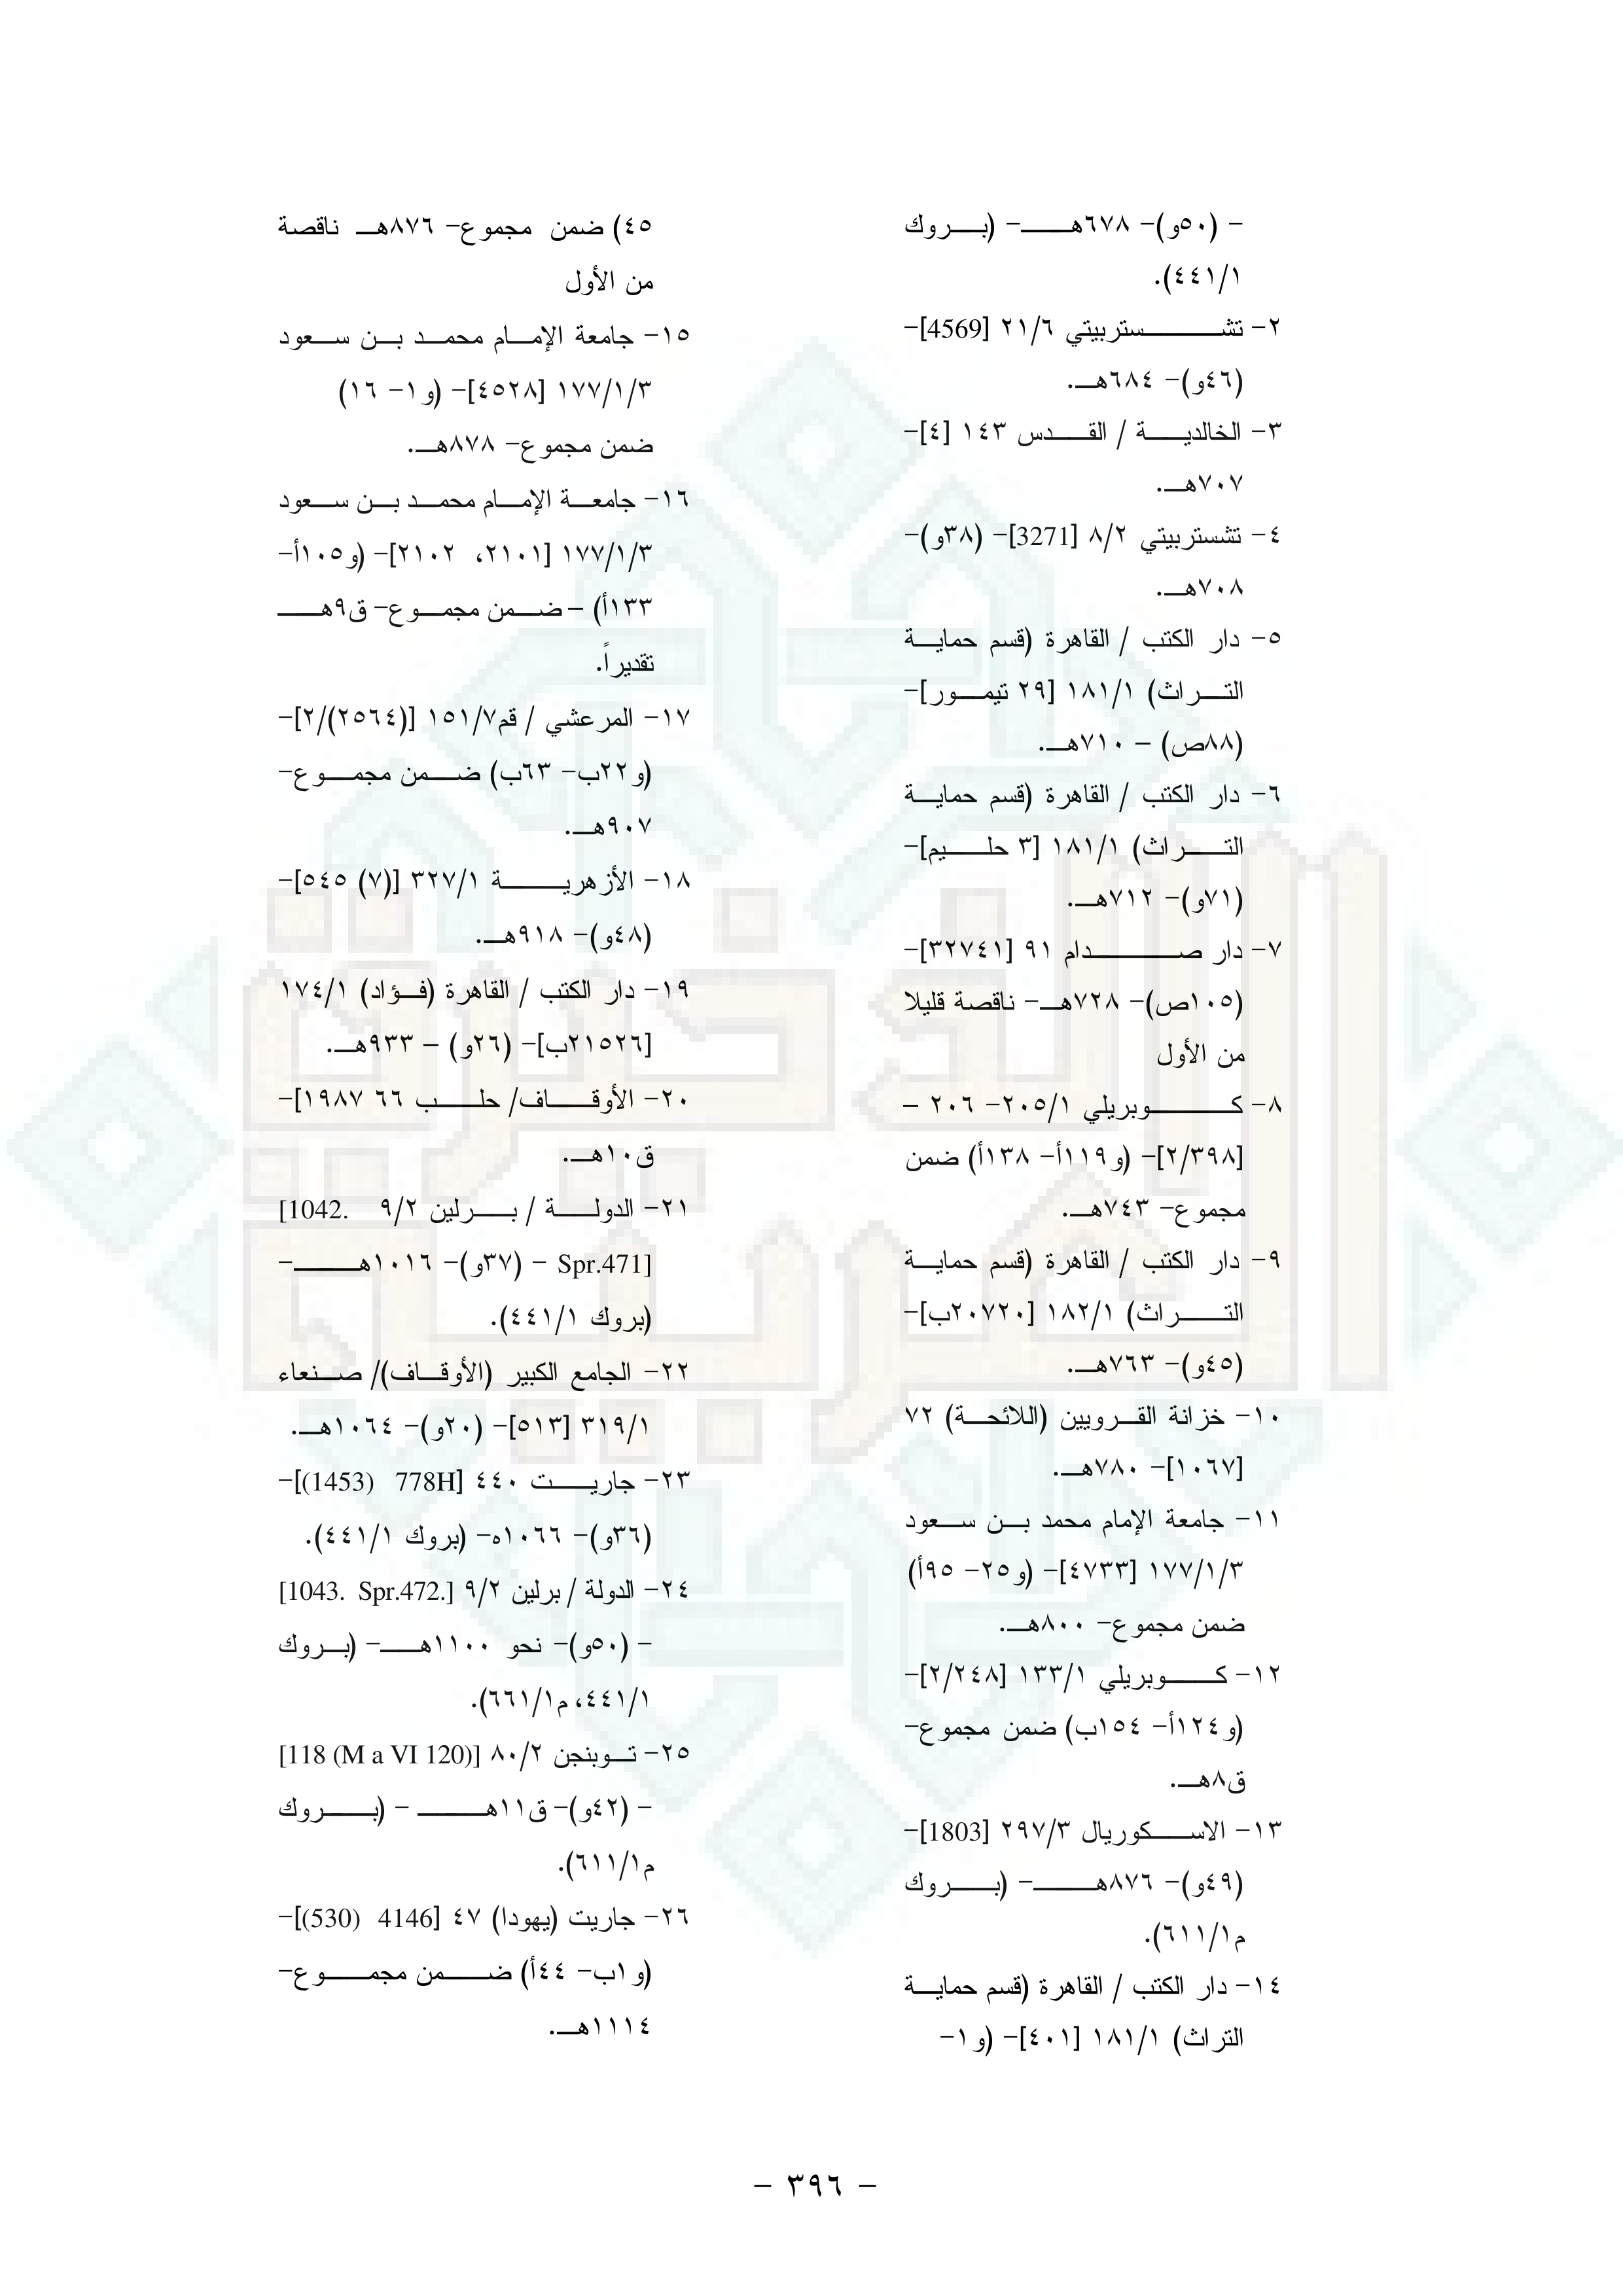 – (٥٠و)– ٦٧٨هـ– (بروك
٤٤١/١).
٢– تشستربيتي ٢١/٦ [4569]–
(٤٦و)– ٦٨٤هـ.
٣– الخالدية / القدس ١٤٣ [٤]–
٧٠٧هـ.
٤– تشستربيتي ٨/٢ [3271]– (٣٨و)–
٧٠٨هـ.
٥– دار الكتب / القاهرة (قسم حماية
التراث) ١٨١/١ [٢٩ تيمور]–
(٨٨ص) – ٧١٠هـ.
٦– دار الكتب / القاهرة (قسم حماية
التراث) ١٨١/١ [٣ حليم]–
(٧١و)– ٧١٢هـ.
٧– دار صدام ٩١ [٣٢٧٤١]–
(١٠٥ص)– ٧٢٨هـ– ناقصة قليلا
من الأول
٨– كوبريلي ٢٠٥/١– ٢٠٦ –
[٢/٣٩٨]– (و١١٩أ– ١٣٨أ) ضمن
مجموع– ٧٤٣هـ.
٩– دار الكتب / القاهرة (قسم حماية
التراث) ١٨٢/١ [٢٠٧٢٠ب]–
(٤٥و)– ٧٦٣هـ.
١٠– خزانة القرويين (اللائحة) ٧٢
[١٠٦٧]– ٧٨٠هـ.
١١– جامعة الإمام محمد بن سعود
١٧٧/١/٣ [٤٧٣٣]– (و٢٥– ٩٥أ)
ضمن مجموع– ٨٠٠هـ.
١٢– كوبريلي ١٣٣/١ [٢/٢٤٨]–
(و١٢٤أ– ١٥٤ب) ضمن مجموع–
ق٨هـ.
١٣– الاسكوريال ٢٩٧/٣ [1803]–
(٤٩و)– ٨٧٦هـ– (بروك
م٦١١/١).
١٤– دار الكتب / القاهرة (قسم حماية
التراث) ١٨١/١ [٤٠١]– (و١–
٤٥) ضمن مجموع– ٨٧٦هـ ناقصة
من الأول
١٥– جامعة الإمام محمد بن سعود
١٧٧/١/٣ [٤٥٢٨]– (و١– ١٦)
ضمن مجموع– ٨٧٨هـ.
١٦– جامعة الإمام محمد بن سعود
١٧٧/١/٣ [٢١٠١، ٢١٠٢]– (و١٠٥أ–
١٣٣أ) – ضمن مجموع– ق٩هـ
تقديراً.
١٧– المرعشي / قم١٥١/٧ [(٢٥٦٤)/٢]–
(و٢٢ب– ٦٣ب) ضمن مجموع–
٩٠٧هـ.
١٨– الأزهرية ٣٢٧/١ [(٧) ٥٤٥]–
(٤٨و)– ٩١٨هـ.
١٩– دار الكتب / القاهرة (فؤاد) ١٧٤/١
[٢١٥٢٦ب]– (٢٦و) – ٩٣٣هـ.
٢٠– الأوقاف/ حلب ٦٦ ١٩٨٧]–
ق١٠هـ.
٢١– الدولة / برلين ٩/٢ [1042.
Spr.471] – (٣٧و)– ١٠١٦هـ–
(بروك ٤٤١/١).
٢٢– الجامع الكبير (الأوقاف)/ صنعاء
٣١٩/١ [٥١٣]– (٢٠و)– ١٠٦٤هـ.
٢٣– جاريت ٤٤٠ [778H (1453)]–
(٣٦و)– ١٠٦٦ه– (بروك ٤٤١/١).
٢٤– الدولة / برلين ٩/٢ [1043. Spr.472.]
– (٥٠و)– نحو ١١٠٠هـ– (بروك
٤٤١/١، م٦٦١/١).
٢٥– توبنجن ٨٠/٢ [118 (M a VI 120)]
– (٤٢و)– ق١١هـ – (بروك
م٦١١/١).
٢٦– جاريت (يهودا) ٤٧ [4146 (530)]–
(و١ب– ٤٤أ) ضمن مجموع–
١١١٤هـ.
– ٣٩٦ –